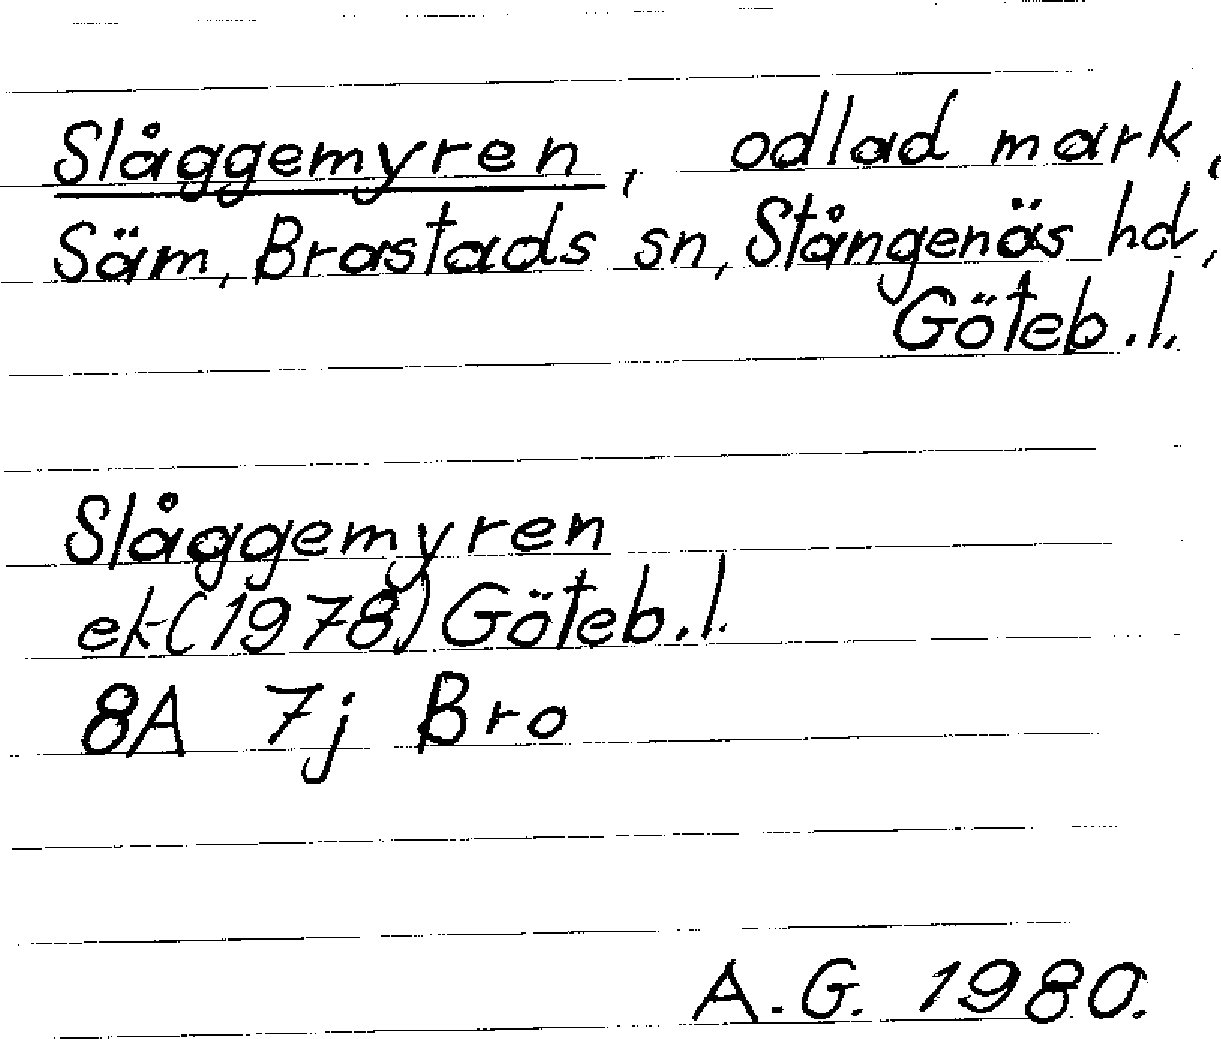 Slåggemyren, odlad mark,
Säm, Brastads sn, Stångenäs hd,
Göteb.l.
Slåggemyren
ek (1978) Göteb.l.
8A 7j Bro
A.G. 1980.